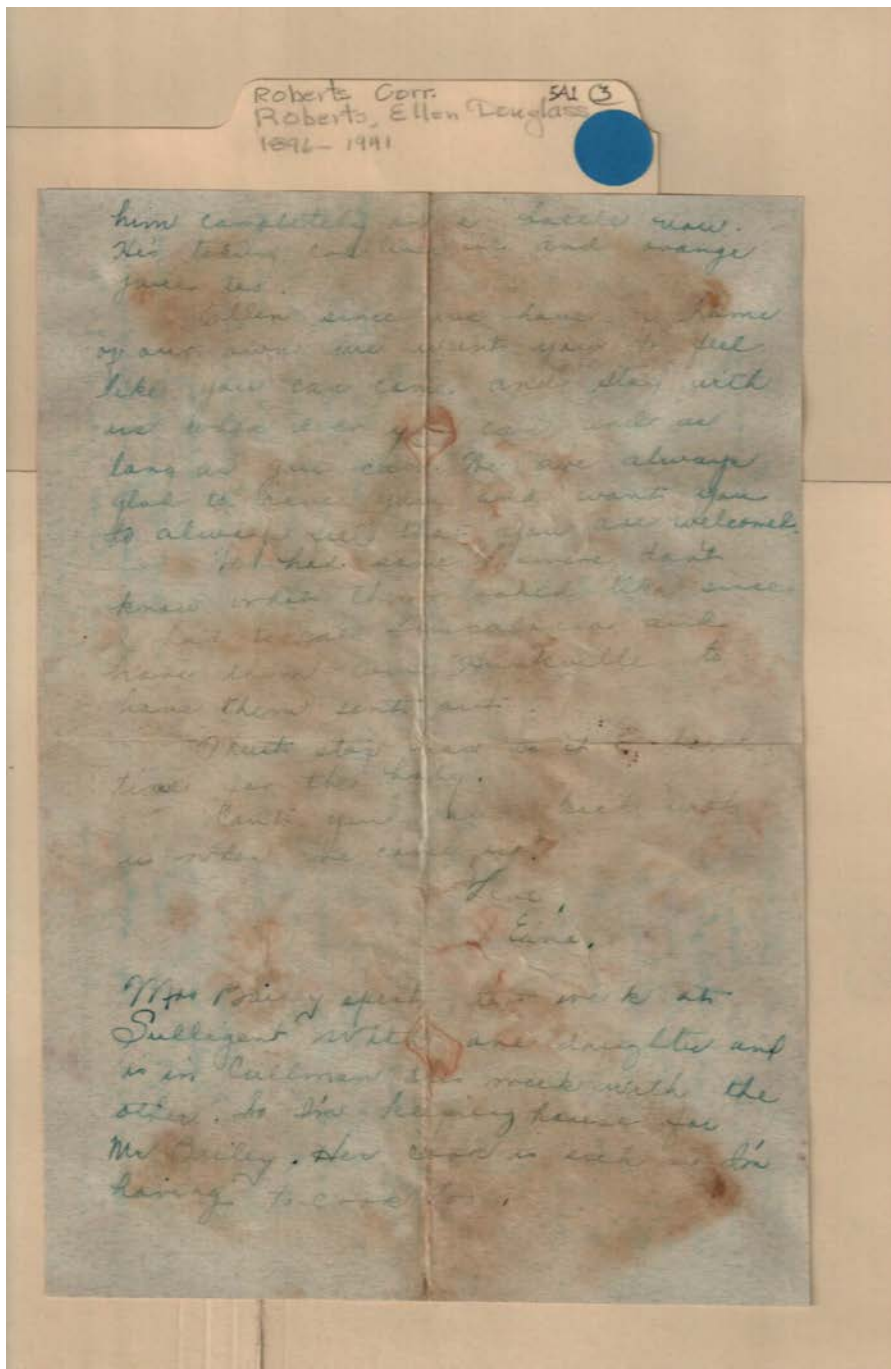 Roberts Corr. 5A1 (3)
Roberts, Ellen Douglass
1896-1941
him completely on a bottle now.
He's taking and orange
juice too.
Ellen since we have a home
of our own we want you to feel
like you can come and stay with
us when ever you can and as
long as you can. We are always
glad to have you and want you
to always feel that you are welcomed.
had some don't
know what they looked like since
I had and
have them Huntsville to
have them sent out.
Must stop now as it
time for the baby.
Can't you back with
us when we come up?
Love,

Mrs Bailey spent week at
Sulligent with one daughter and
is in Cullman this week with the
other. So I'm keeping house for
Mr Bailey. Her cook is sick so I'm
having to cook too.